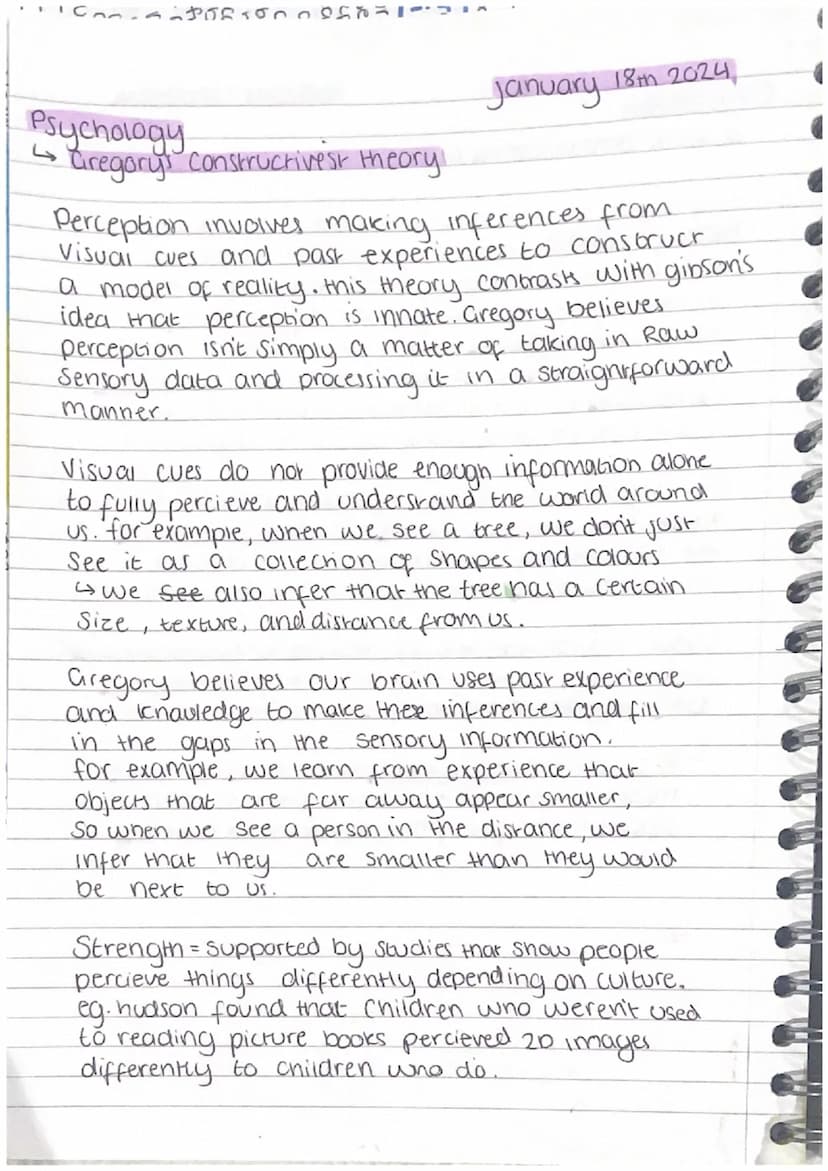 January 18th 2024
Psychology
↳ Gregory's Constructivest theory
Perception involves making inferences from
Visual cues and past experiences to construct
a model of reality. this theory contrasts with gibson's
idea that perception is innate. Gregory believes
perception isn't simply a matter of taking in Raw
Sensory data and processing it in a straightforward
manner.
Visual cues do not provide enough information alone
to fully percieve and understand the world around
us. for example, when we see a tree, we don't just
See it as a collection of shapes and colours
↳ we see also infer that the tree has a certain
Size, texture, and distance from us.
Gregory believes our brain uses past experience
and knowledge to make these inferences and fill
in the gaps in the sensory information.
for example, we learn from experience that
objects that are far away appear smaller,
So when we see a person in the distance, we
infer that they are smaller than they would
be next to us.
Strength = supported by studies that show people
percieve things differently depending on culture.
eg. hudson found that children who weren't used
to reading picture books percieved 2D images
differently to children who do.